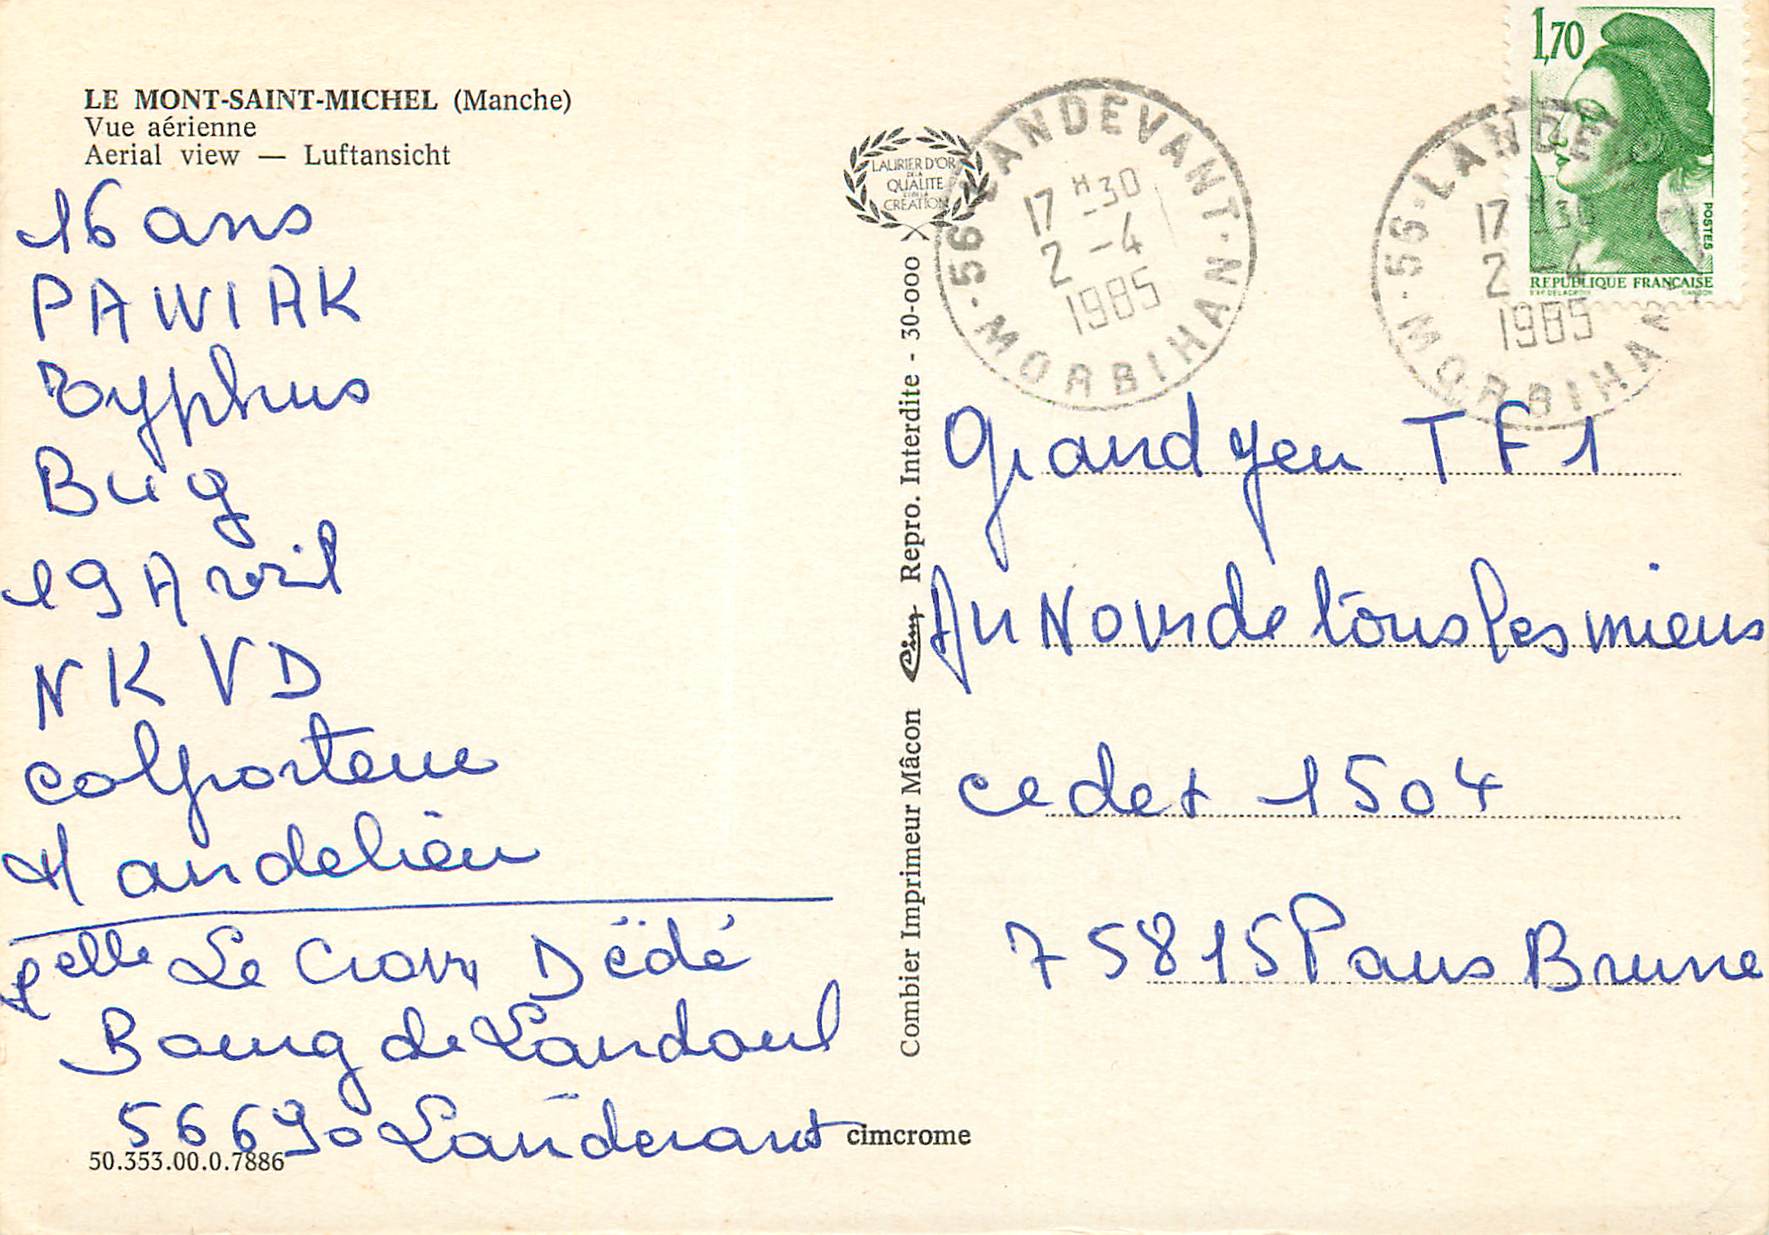 LE MONT-SAINT-MICHEL (Manche)
Vue aérienne
Aerial view — Luftansicht
16 ans
PAWIAK
Typhus
Bug
19 Avril
NKVD
colporteur
Mandelieu
Le Crom Dédé
Bourg de Landaul
56690 Landevant
50.353.00.0.7886
cimcrome
Combier Imprimeur Mâcon Cim Repro. Interdite - 30-000
LAURIER D'OR
DE LA
QUALITE
ET DE LA
CRÉATION
56 - LANDEVANT - MORBIHAN -
17 H 30
2 - 4
1985
56 - LANDEV
MORBIHAN
17 H 30
2 - 4
1985
1,70
POSTES
REPUBLIQUE FRANÇAISE
Grand jeu TF1
Au Nom de tous les miens
cedex 1504
75815 Paris Brune